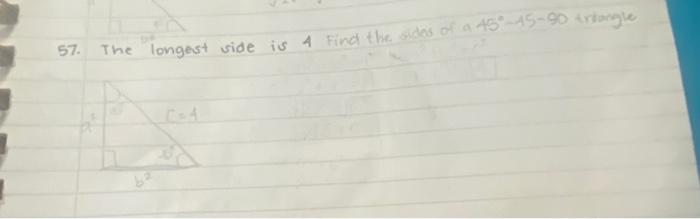 57. The longest side is 4 Find the sides of a 45°-45-90 triangle
C=4
a²
b²